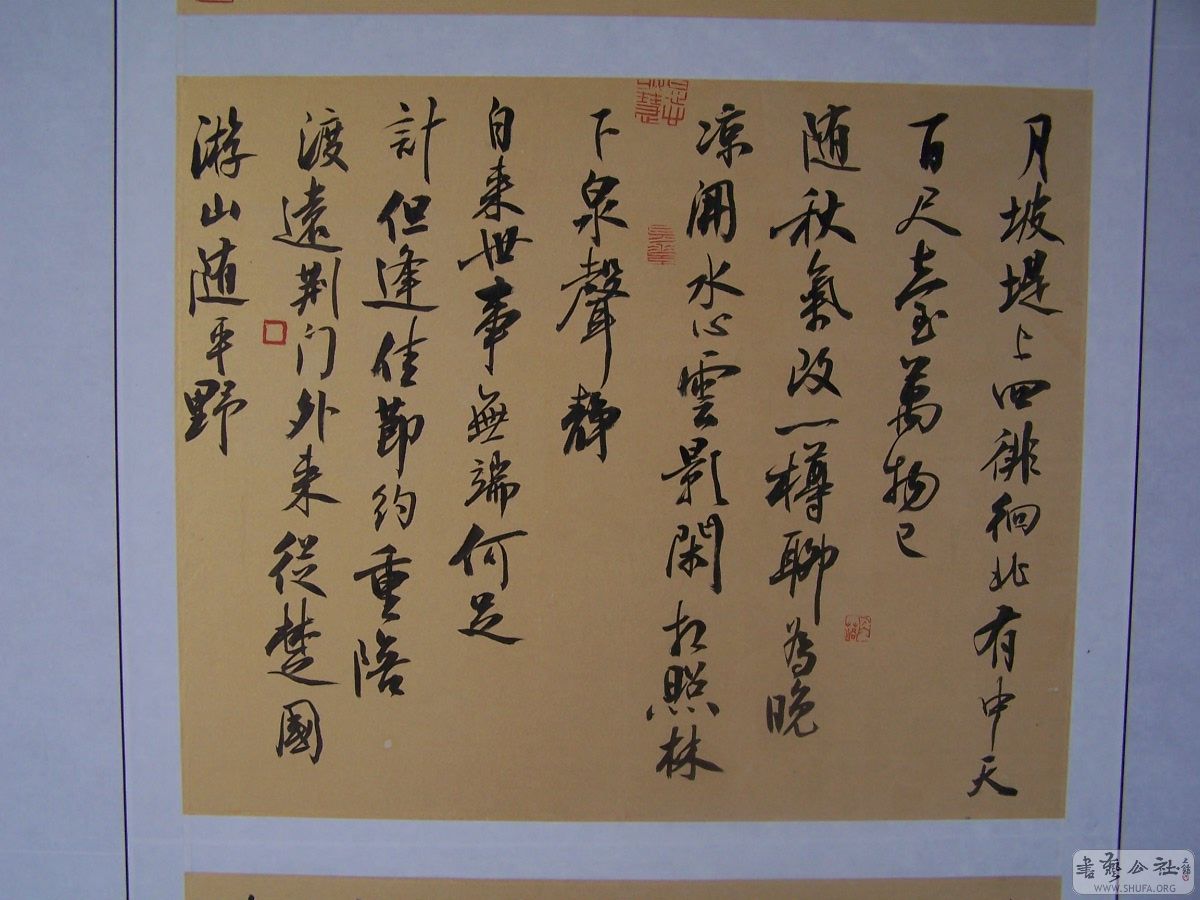 月坡堤上四徘徊北有中天
百尺臺萬物已
随秋氣改一樽聊為晚
凉開水心雲影閑相照林
下泉聲靜
自来世事無端何足
計但逢佳節約重陪
渡遠荆门外来從楚國
游山随平野
書藝公社
WWW.SHUFA.ORG